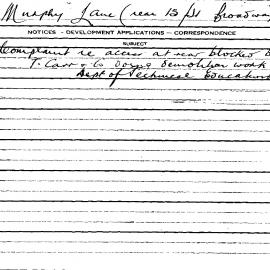 Murphy Lane (rear 13/21 Broadway
NOTICES - DEVELOPMENT APPLICATIONS - CORRESPONDENCE
SUBJECT
Complaint re access at rear blocked
T. Carr & Co doing demolition work
Dept of Technical Education